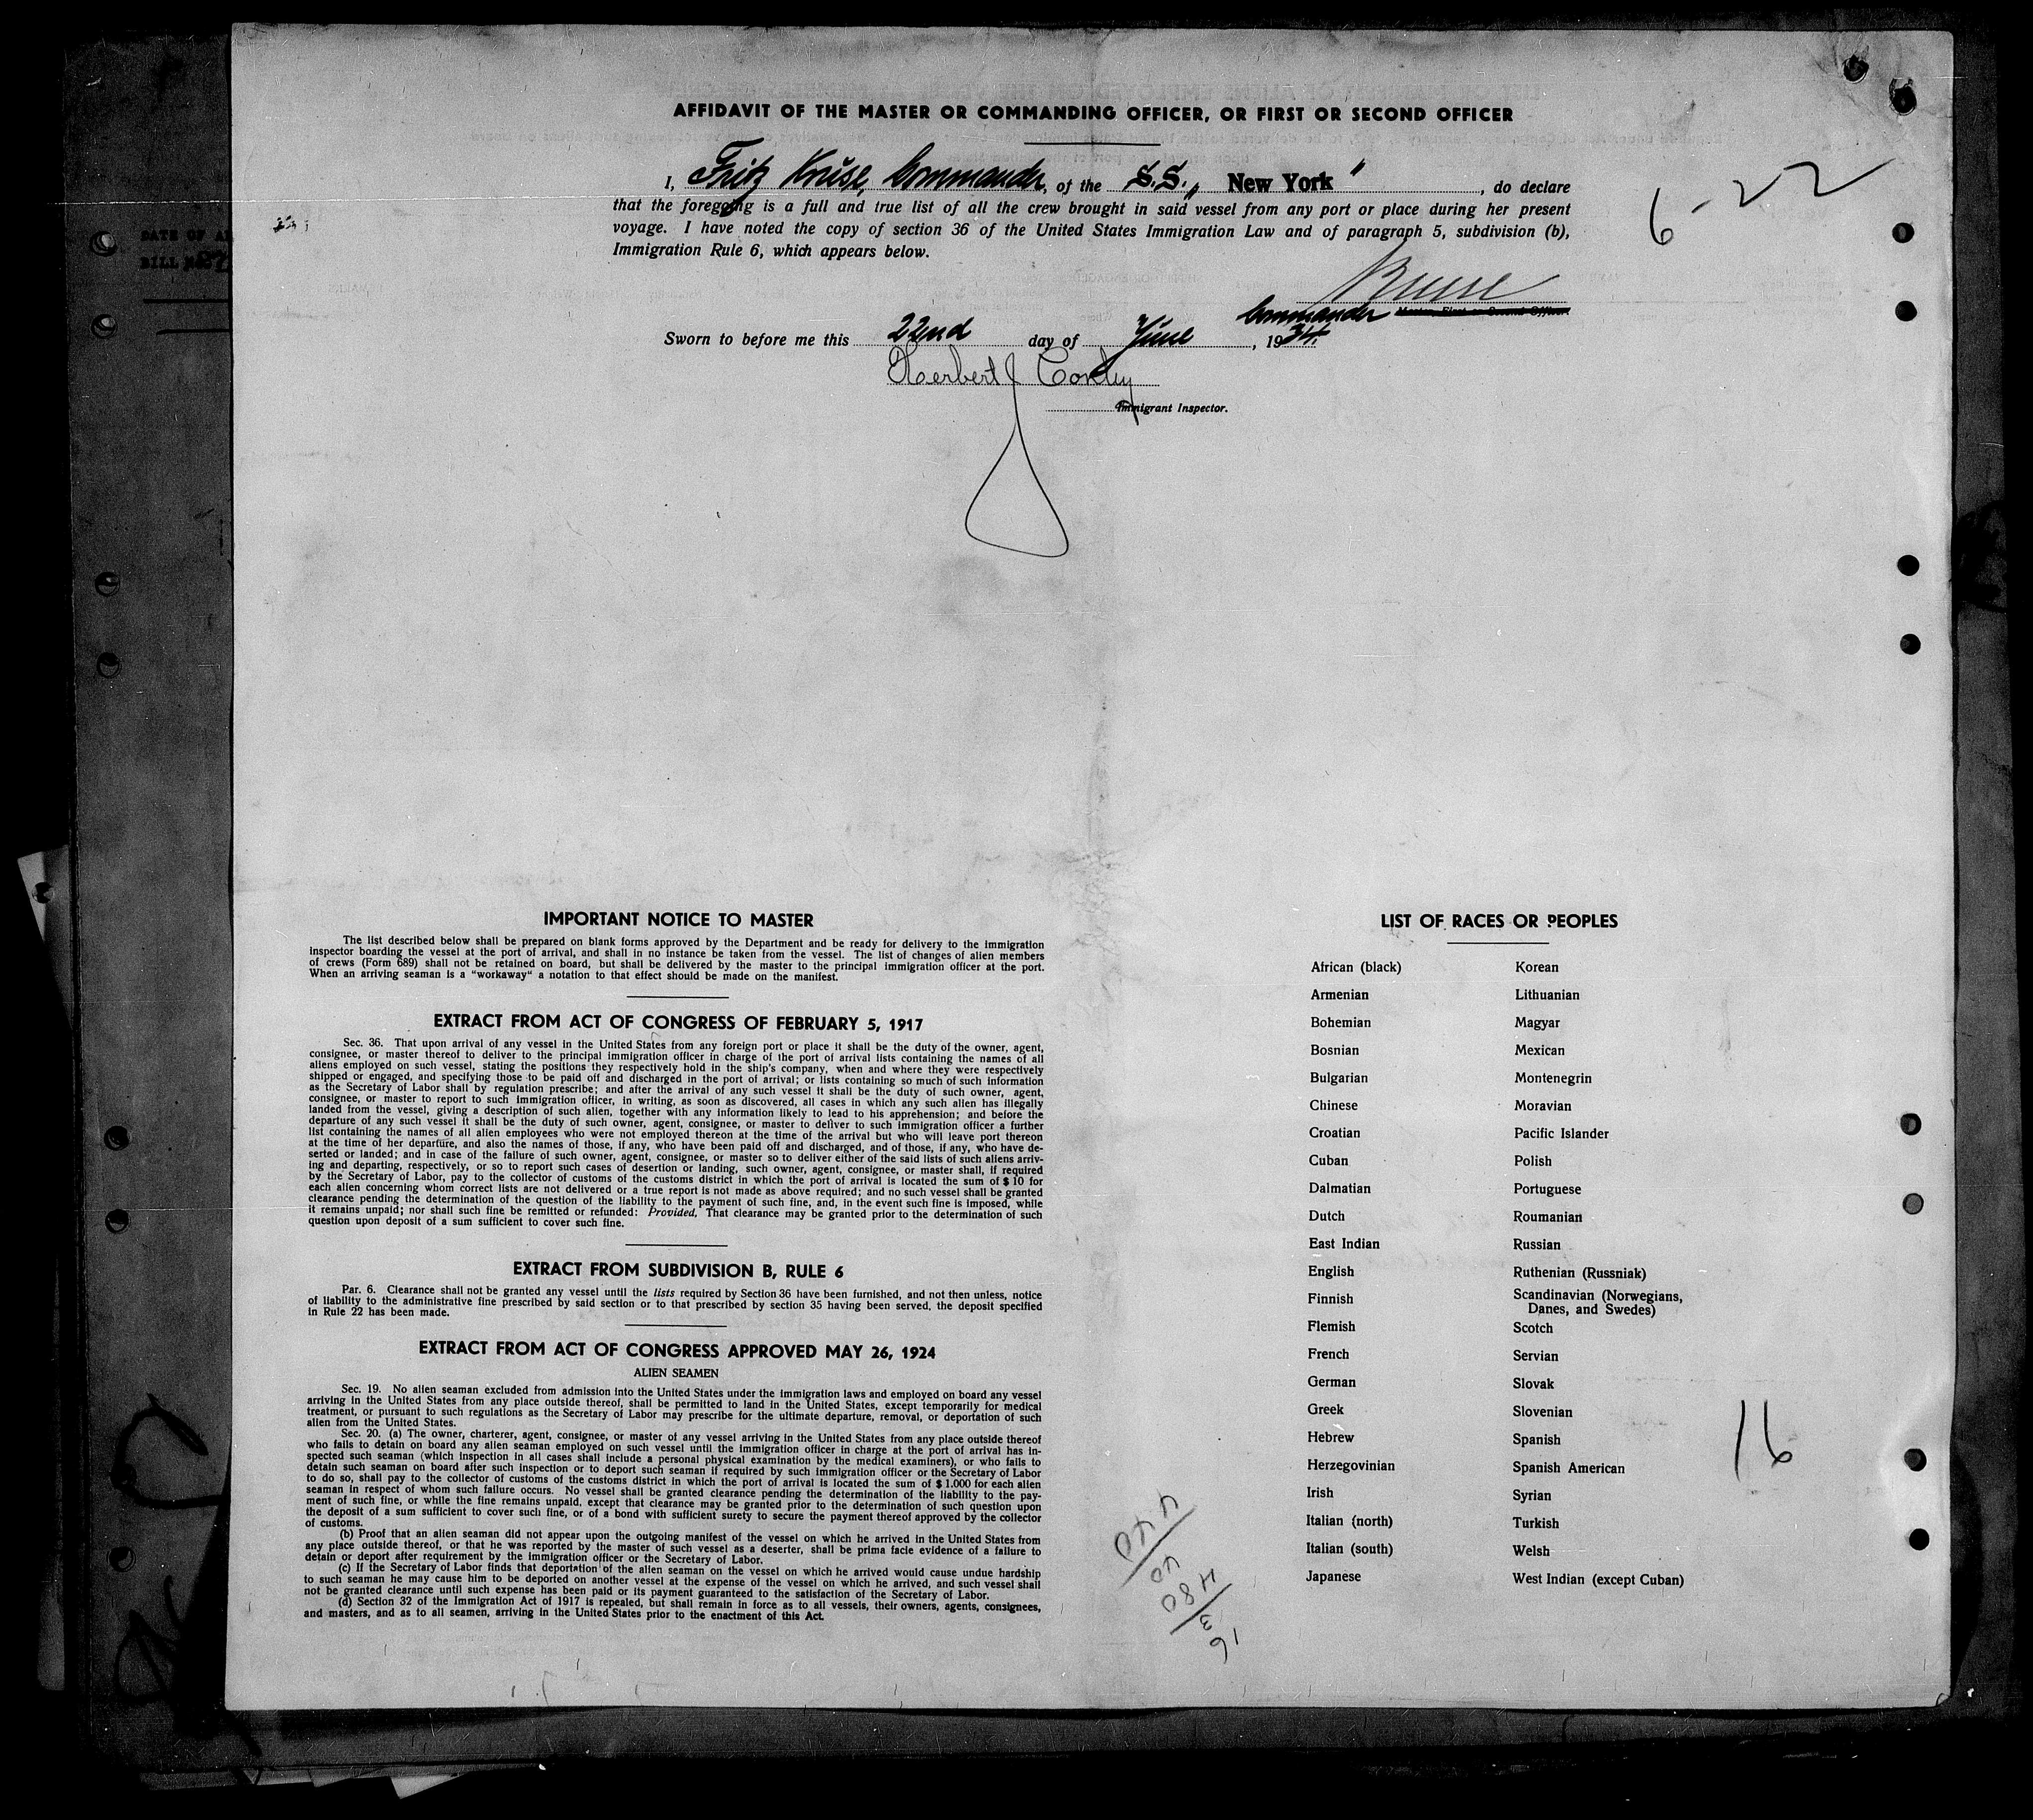 AFFIDAVIT OF THE MASTER OR COMMANDING OFFICER, OR FIRST OR SECOND OFFICER
I, Fritz Kruse, Commander, of the S.S. „ New York ", do declare
that the foregoing is a full and true list of all the crew brought in said vessel from any port or place during her present
voyage. I have noted the copy of section 36 of the United States Immigration Law and of paragraph 5, subdivision (b),
Immigration Rule 6, which appears below.
6-22
Kruse
Commander Master, First or Second Officer.
Sworn to before me this 22nd day of June, 1934.
Herbert J Conley
Immigrant Inspector.
DATE OF
BILL
IMPORTANT NOTICE TO MASTER
The list described below shall be prepared on blank forms approved by the Department and be ready for delivery to the immigration
inspector boarding the vessel at the port of arrival, and shall in no instance be taken from the vessel. The list of changes of alien members
of crews (Form 689) shall not be retained on board, but shall be delivered by the master to the principal immigration officer at the port.
When an arriving seaman is a "workaway" a notation to that effect should be made on the manifest.
EXTRACT FROM ACT OF CONGRESS OF FEBRUARY 5, 1917
Sec. 36. That upon arrival of any vessel in the United States from any foreign port or place it shall be the duty of the owner, agent,
consignee, or master thereof to deliver to the principal immigration officer in charge of the port of arrival lists containing the names of all
aliens employed on such vessel, stating the positions they respectively hold in the ship's company, when and where they were respectively
shipped or engaged, and specifying those to be paid off and discharged in the port of arrival; or lists containing so much of such information
as the Secretary of Labor shall by regulation prescribe; and after the arrival of any such vessel it shall be the duty of such owner, agent,
consignee, or master to report to such immigration officer, in writing, as soon as discovered, all cases in which any such alien has illegally
landed from the vessel, giving a description of such alien, together with any information likely to lead to his apprehension; and before the
departure of any such vessel it shall be the duty of such owner, agent, consignee, or master to deliver to such immigration officer a further
list containing the names of all alien employees who were not employed thereon at the time of the arrival but who will leave port thereon
at the time of her departure, and also the names of those, if any, who have been paid off and discharged, and of those, if any, who have de-
serted or landed; and in case of the failure of such owner, agent, consignee, or master so to deliver either of the said lists of such aliens arriv-
ing and departing, respectively, or so to report such cases of desertion or landing, such owner, agent, consignee, or master shall, if required
by the Secretary of Labor, pay to the collector of customs of the customs district in which the port of arrival is located the sum of $ 10 for
each alien concerning whom correct lists are not delivered or a true report is not made as above required; and no such vessel shall be granted
clearance pending the determination of the question of the liability to the payment of such fine, and, in the event such fine is imposed, while
it remains unpaid; nor shall such fine be remitted or refunded: Provided, That clearance may be granted prior to the determination of such
question upon deposit of a sum sufficient to cover such fine.
EXTRACT FROM SUBDIVISION B, RULE 6
Par. 6. Clearance shall not be granted any vessel until the lists required by Section 36 have been furnished, and not then unless, notice
of liability to the administrative fine prescribed by said section or to that prescribed by section 35 having been served, the deposit specified
in Rule 22 has been made.
EXTRACT FROM ACT OF CONGRESS APPROVED MAY 26, 1924
ALIEN SEAMEN
Sec. 19. No alien seaman excluded from admission into the United States under the immigration laws and employed on board any vessel
arriving in the United States from any place outside thereof, shall be permitted to land in the United States, except temporarily for medical
treatment, or pursuant to such regulations as the Secretary of Labor may prescribe for the ultimate departure, removal, or deportation of such
alien from the United States.
Sec. 20. (a) The owner, charterer, agent, consignee, or master of any vessel arriving in the United States from any place outside thereof
who fails to detain on board any alien seaman employed on such vessel until the immigration officer in charge at the port of arrival has in-
spected such seaman (which inspection in all cases shall include a personal physical examination by the medical examiners), or who fails to
detain such seaman on board after such inspection or to deport such seaman if required by such immigration officer or the Secretary of Labor
to do so, shall pay to the collector of customs of the customs district in which the port of arrival is located the sum of $ 1.000 for each alien
seaman in respect of whom such failure occurs. No vessel shall be granted clearance pending the determination of the liability to the pay-
ment of such fine, or while the fine remains unpaid, except that clearance may be granted prior to the determination of such question upon
the deposit of a sum sufficient to cover such fine, or of a bond with sufficient surety to secure the payment thereof approved by the collector
of customs.
(b) Proof that an alien seaman did not appear upon the outgoing manifest of the vessel on which he arrived in the United States from
any place outside thereof, or that he was reported by the master of such vessel as a deserter, shall be prima facie evidence of a failure to
detain or deport after requirement by the immigration officer or the Secretary of Labor.
(c) If the Secretary of Labor finds that deportation of the alien seaman on the vessel on which he arrived would cause undue hardship
to such seaman he may cause him to be deported on another vessel at the expense of the vessel on which he arrived, and such vessel shall
not be granted clearance until such expense has been paid or its payment guaranteed to the satisfaction of the Secretary of Labor.
(d) Section 32 of the Immigration Act of 1917 is repealed, but shall remain in force as to all vessels, their owners, agents, consignees,
and masters, and as to all seamen, arriving in the United States prior to the enactment of this Act.
LIST OF RACES OR PEOPLES
African (black) Korean
Armenian Lithuanian
Bohemian Magyar
Bosnian Mexican
Bulgarian Montenegrin
Chinese Moravian
Croatian Pacific Islander
Cuban Polish
Dalmatian Portuguese
Dutch Roumanian
East Indian Russian
English Ruthenian (Russniak)
Finnish Scandinavian (Norwegians,
Danes, and Swedes)
Flemish Scotch
French Servian
German Slovak
Greek Slovenian
Hebrew Spanish
Herzegovinian Spanish American
Irish Syrian
Italian (north) Turkish
Italian (south) Welsh
Japanese West Indian (except Cuban)
16
480